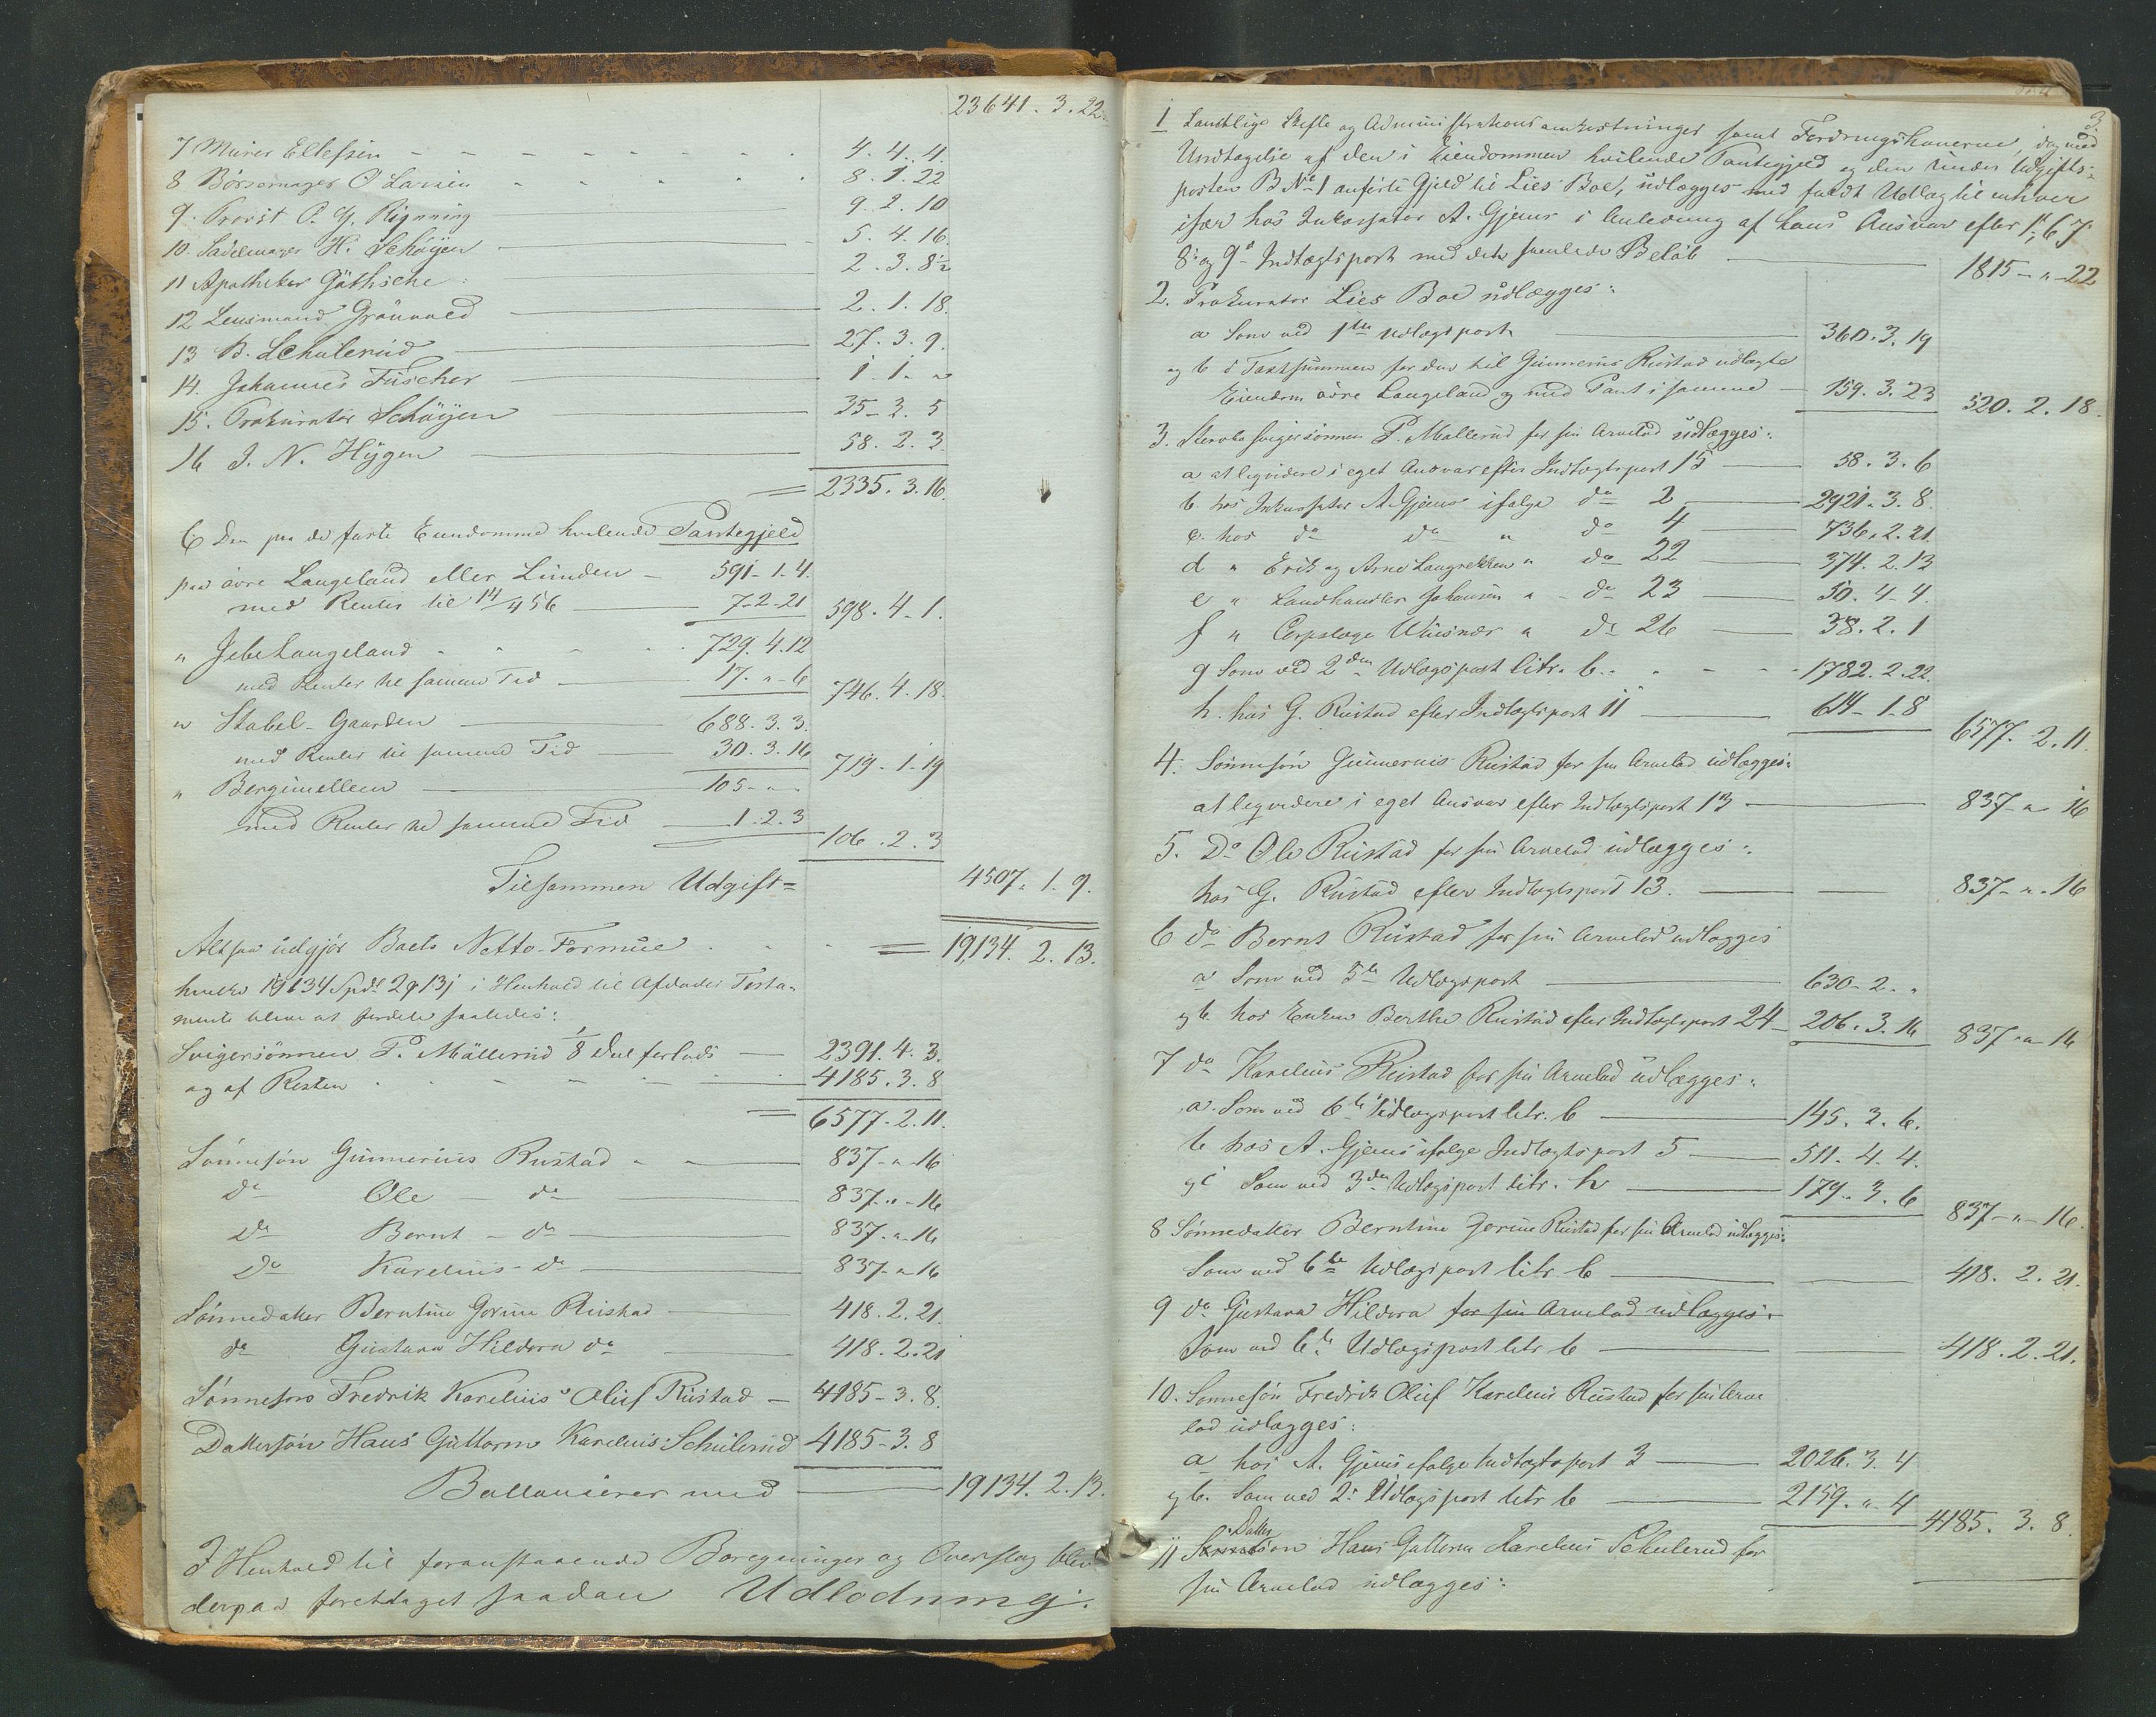 23641. 3. 22.
7 Murer Ellefsen - 4. 4. 4.
8 Børsemager O Larsen 8. 1. 22
9. Provst P. H. Rynning 9. 2. 10
10. Sadelmager H. Schøyen 5. 4. 16.
11 Apotheker Gøthsche 2. 3. 8½
12 Lensmand Grønvold 2. 1. 18.
13 B. Schulerud 27. 3. 9.
14. Johannes Fuscher 1. 1. "
15. Prokurator Schøyen 35 - 3. 5
16 I. N. Hygen 58. 2. 3
= 2335. 3. 16.
C Den paa de faste Eiendomme hvilende Pantegjeld
paa øvre Langeland eller Lunden - 591 - 1. 4.
med Renter til 14/4 56 7 - 2 - 21 598. 4. 1.
" Jebe Langeland 729. 4. 12
med Renter til samme Tid 17. " - 6 746. 4. 18.
" Stabel-Gaarden 688. 3. 3.
med Renter til samme Tid 30. 3. 16 719 - 1 - 19
" Bergimellem 105 - " -
med Renter til samme Tid 1. 2. 3 106. 2. 3
Tilsammen Udgift = 4507. 1. 9.
Altsaa udgjør Boets Netto-Formue = 19,134. 2. 13.
hvilke 19134 Spdl 2 ₰ 13 ß i Henhold til Afdødes Testa-
mente blive at fordele saaledes:
Svigersønnen P. Møllerud 1/8 Deel forlods 2391. 4. 3.
og af Resten 4185. 3. 8
= 6577 - 2. 11.
Sønnesøn Gunnerius Rustad 837 - " - 16
do Ole do 837 - " - 16
do Bernt - do 837 - " - 16
Do Karelius - Do 837 - " 16
Sønnedatter Berntine Jorine Rustad 418. 2. 21.
do Gustava Hildora do 418. 2. 21
Sønnesøn Fredrik Karelius Oluf Rustad - 4185 - 3. 8.
Dattersøn Hans Guttorm Karelius Schulerud 4185 - 3. 8
Ballancerer med 19134. 2. 13.
I Henhold til foranstaaende Beregninger og Overslag blev
derpaa foretaget saadan Udlodning.
3.
1 Samtlige Skifte og Administrationsomkostninger samt Fordringshaverne, dog med
Undtagelse af den i Eiendommen hvilende Pantegjeld og den under Udgifts-
posten B No 1 anførte Gjeld til Lies Boe, udlægges med fuldt Udlæg til enhver
især hos Inkassator A. Gjems i Anledning af hans Ansvar efter 1, 6 7
8 og 9de Indtægtspost med det samlede Beløb 1815 - " - 22
2. Prokurator Lies Boe udlægges:
a Som ved 1ste Udlægspost 360. 3. 19
og b i Taxtsummen for den til Gunnerius Rustad udlagte
Eiendom øvre Langeland og med Pant i samme - 159. 3. 23 520. 2. 18.
3. Stervbo Svigersønnen P. Møllerud for sin Arvelod udlægges:
a at liqvidere i eget Ansvar efter Indtægtspost 15 58. 3. 6
b. hos Inkassator A. Gjems ifølge do 2 2921. 3. 8.
c. hos do do " do 4 736. 2. 21.
d " Erik og Arne Langrekken " do 22 374. 2. 13
e " Landhandler Johansen " - do 23 50. 4. 4.
f " Corpslæge Wiesner " do 26 38. 2. 1
g Som ved 2den Udlægspost litr. b. 1782. 2. 22.
h. hos G. Rustad efter Indtægtspost 11 614 - 1. 8 6577. 2. 11.
4. Sønnesøn Gunnerius Rustad for sin Arvelod udlægges:
at liqvidere i eget Ansvar efter Indtægtspost 13 837 - " 16
5. Do Ole Rustad for sin Arvelod udlægges:
hos G. Rustad efter Indtægtspost 13. 837 - " - 16
6 do Bernt Rustad for sin Arvelod udlægges
a Som ved 5te Udlægspost 630 - 2. "
og b. hos Enken Berthe Rustad efter Indtægtspost 24 - 206. 3. 16 837 - " - 16
7 do Karelius Rustad for sin Arvelod udlægges:
a. Som ved 6te Udlægspost litr. b 145. 3. 6.
b hos A. Gjems ifølge Indtægtspost 5 511. 4. 4.
og c Som ved 3die Udlægspost litr. h 179. 3. 6 837 - " - 16.
8 Sønnedatter Berntine Jorine Rustad for sin Arvelod udlægges:
Som ved 6te Udlægspost litr b 418. 2. 21.
9 do Gustava Hildora for sin Arvelod udlægges:
Som ved 6te Udlægspost litr b 418. 2. 21.
10. Sønnesøn Fredrik Oluf Karelius Rustad for sin Arve
lod udlægges:
a hos A. Gjems ifølge Indtægtspost 3 2026. 3. 4
og b. Som ved 2. Udlægspost litr b 2159. " 4 4185. 3. 8.
11 Dattersøn Hans Guttorm Karelius Schulerud for
sin Arvelod udlægges: